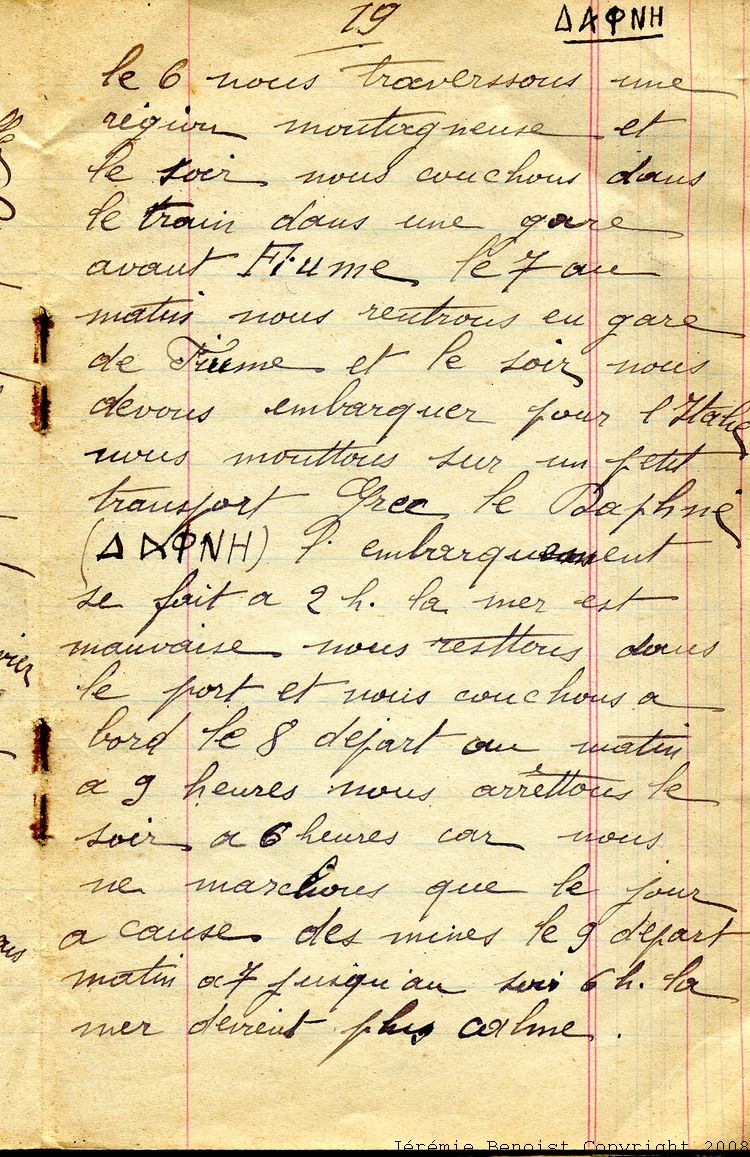 19
ΔΑΦΝΗ
le 6 nous traverssons une
région montagneuse et
le soir nous couchons dans
le train dans une gare
avant Fiume le 7 au
matin nous rentrons en gare
de Fiume et le soir nous
devons embarquer pour l'Italie
nous monttons sur un petit
transport Grec le Daphné
(ΔΑΦΝΗ) l'embarquement
se fait a 2 h. la mer est
mauvaise nous resttons dans
le port et nous couchons a
bord le 8 départ au matin
a 9 heures nous arrêttons le
soir a 6 heures car nous
ne marchons que le jour
a cause des mines le 9 départ
matin a 7 jusqu'au soir 6 h. la
mer devient plus calme.
Jérémie Benoist Copyright 2008